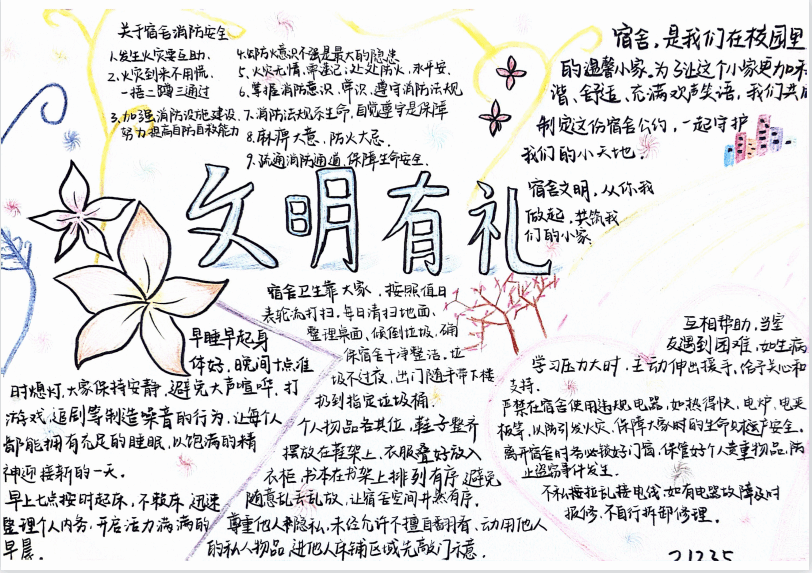 关于宿舍消防安全
1.发生火灾要互助.
2.火灾到来不用慌,
一捂二蹲三通过
3.加强消防设施建设,
努力提高自防自救能力
4.防火意识不强是最大的隐患
5.火灾无情,牢速记;处处防火,永平安.
6.掌握消防意识、常识,遵守消防法规
7.消防法规示生命,自觉遵守是保障
8.麻痹大意,防火大忌.
9.疏通消防通道,保障生命安全.
宿舍,是我们在校园里
的温馨小家.为了让这个小家更加和
谐、舒适、充满欢声笑语,我们共同
制定这份宿舍公约,一起守护
我们的小天地.
宿舍文明,从你我
做起,共筑我
们的小家
文明有礼
宿舍卫生靠大家,按照值日
表轮流打扫,每日清扫地面、
整理桌面,倾倒垃圾,确
保宿舍干净整洁.垃
圾不过夜,出门随手带下楼
扔到指定垃圾桶.
个人物品各其位,鞋子整齐
摆放在鞋架上,衣服叠好放入
衣柜,书本在书架上排列有序,避免
随意乱丢乱放,让宿舍空间井然有序.
尊重他人隐私,未经允许不擅自翻看、动用他人
的私人物品,进他人床铺区域先敲门示意.
早睡早起身
体好,晚间十点准
时熄灯,大家保持安静,避免大声喧哗、打
游戏、追剧等制造噪音的行为,让每个人
都能拥有充足的睡眠,以饱满的精
神迎接新的一天.
早上七点按时起床,不赖床,迅速
整理个人内务,开启活力满满的
早晨.
互相帮助,当室
友遇到困难,如生病
学习压力大时,主动伸出援手,给予关心和
支持.
严禁在宿舍使用违规电器,如热得快,电炉,电夹
板等,以防引发火灾,保障大家的生命财产安全.
离开宿舍时务必锁好门窗,保管好个人贵重物品,防
止盗窃事件发生.
不私接拉乱接电线,如有电器故障及时
报修,不自行拆卸修理.
21235